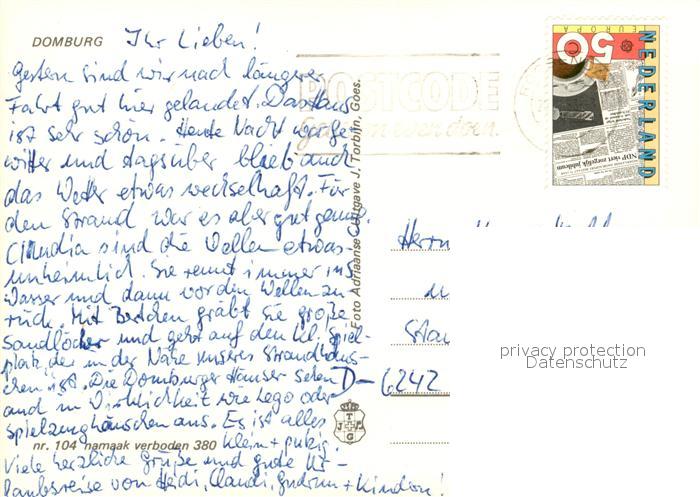 DOMBURG
Ihr Lieben!
Gestern sind wir nach längerer
Fahrt gut hier gelandet. Das Haus
ist sehr schön. Heute Nacht war Ge-
witter und tagsüber blieb auch
das Wetter etwas wechselhaft. Für
den Strand war es aber gut genug.
Claudia sind die Wellen etwas
unheimlich. Sie rennt immer ins
Wasser und dann vor den Wellen zu-
rück. Mit Bettchen gräbt sie große
Sandlöcher und geht auf den kl. Spiel-
platz, der in der Nähe unseres Strandhäus-
chen ist. Die Domburger Häuser sehen
auch in Wirklichkeit wie Lego oder
Spielzeughäuschen aus. Es ist alles
klein + putzig.
nr. 104 namaak verboden 380
Viele herzliche Grüße und gute Ur-
laubsreise von Heidi, Claudi, Gudrun + Kindern!
Foto Adriaanse Uitgave J. Torbijn, Goes.
POSTCODE
NEDERLAND
EUROPA
50
NDP viert zorgelijk jubileum
Herrn
D-6242
T J G
privacy protection
Datenschutz